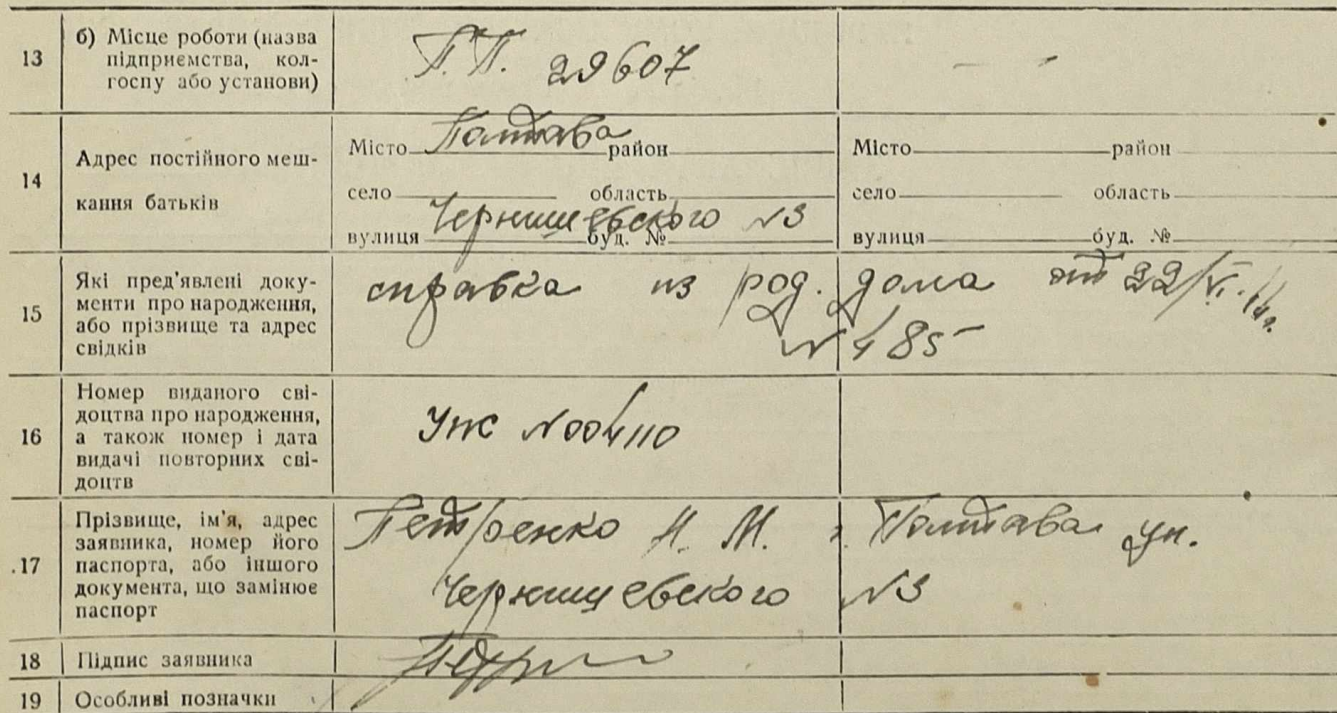 13 б) Місце роботи (назва
підприємства, кол-
госпу або установи)
П.П. 29607
— -
14 Адрес постійного меш-
кання батьків
Місто Полтава район
село область
вулиця Чернишевского буд. № №3
Місто район
село область
вулиця буд. №
15 Які пред'явлені доку-
менти про народження,
або прізвище та адрес
свідків
справка из род. дома от 22/VI.
№ 485
16 Номер виданого сві-
доцтва про народження,
а також номер і дата
видачі повторних сві-
доцтв
УЖ №004110
17 Прізвище, ім'я, адрес
заявника, номер його
паспорта, або іншого
документа, що замінює
паспорт
Петренко Н. М. г. Полтава ул.
Чернишевского №3
18 Підпис заявника
19 Особливі позначки